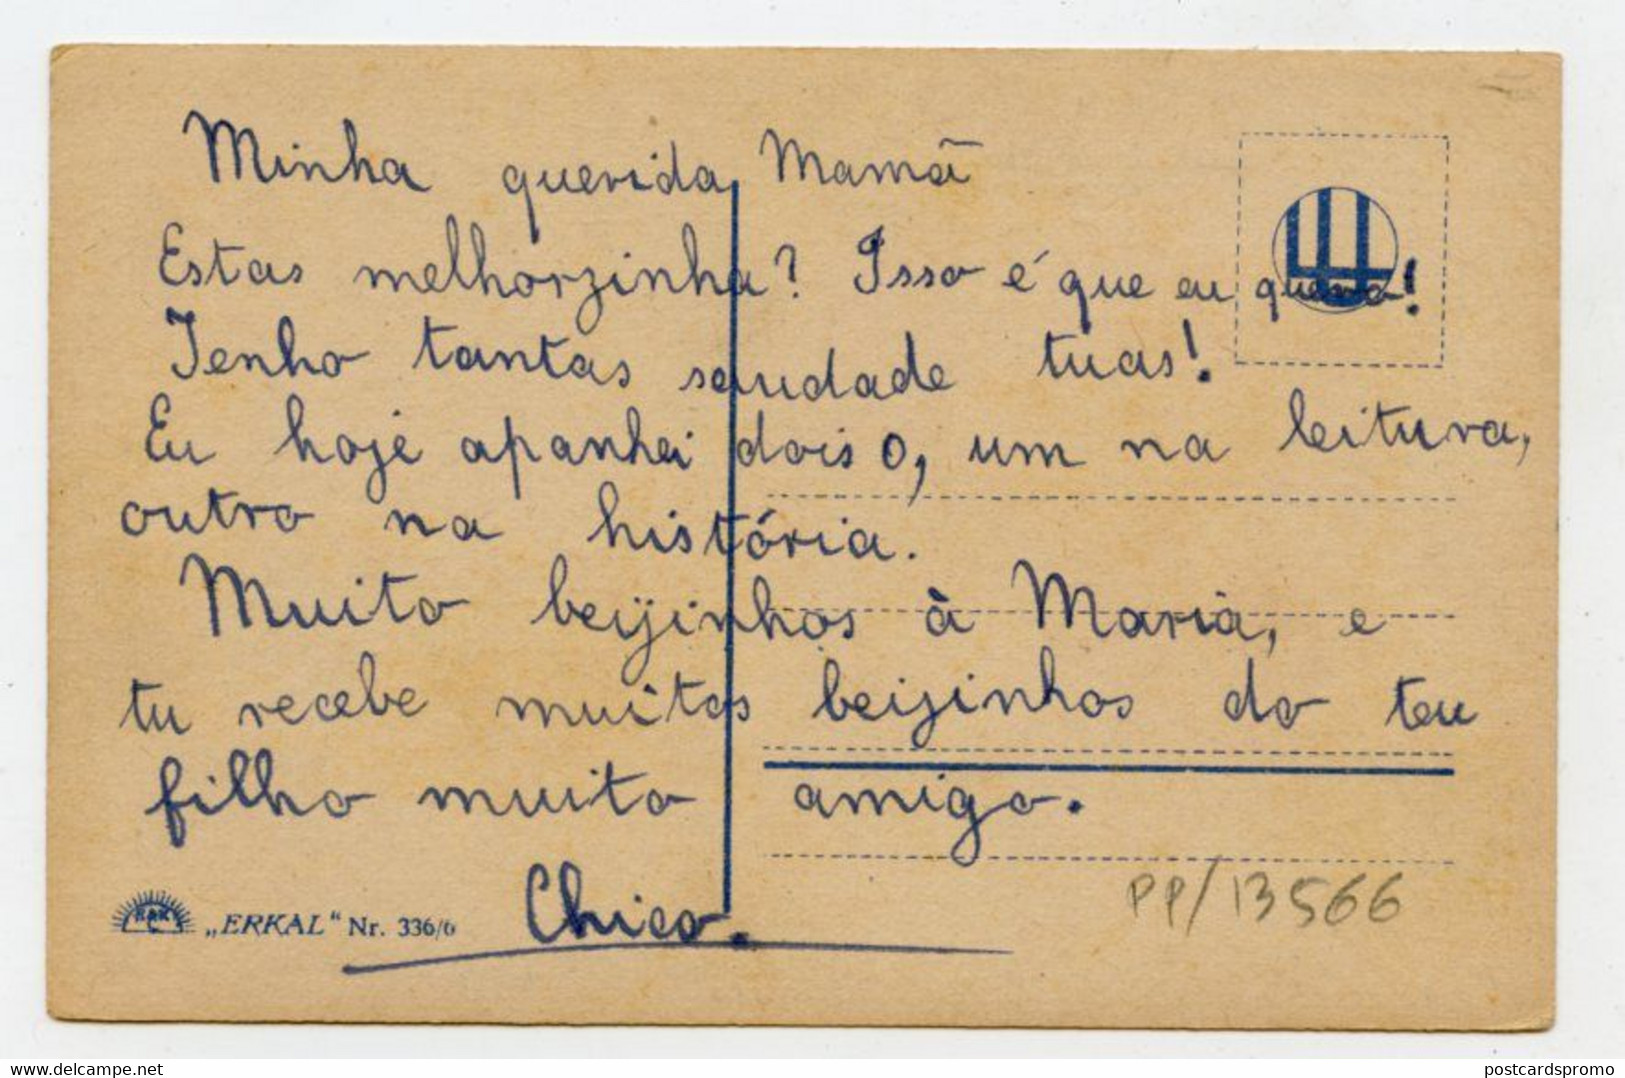 Minha querida Mamã
Estas melhorzinha? Isso é que eu quero!
Tenho tantas saudade tuas!
Eu hoje apanhei dois O, um na leitura,
outro na história.
Muito beijinhos à Maria, e
tu recebe muitos beijinhos do teu
filho muito amigo.
Chico.
„ERKAL" Nr. 336/6
PP/13566
delcampe.net
postcardspromo